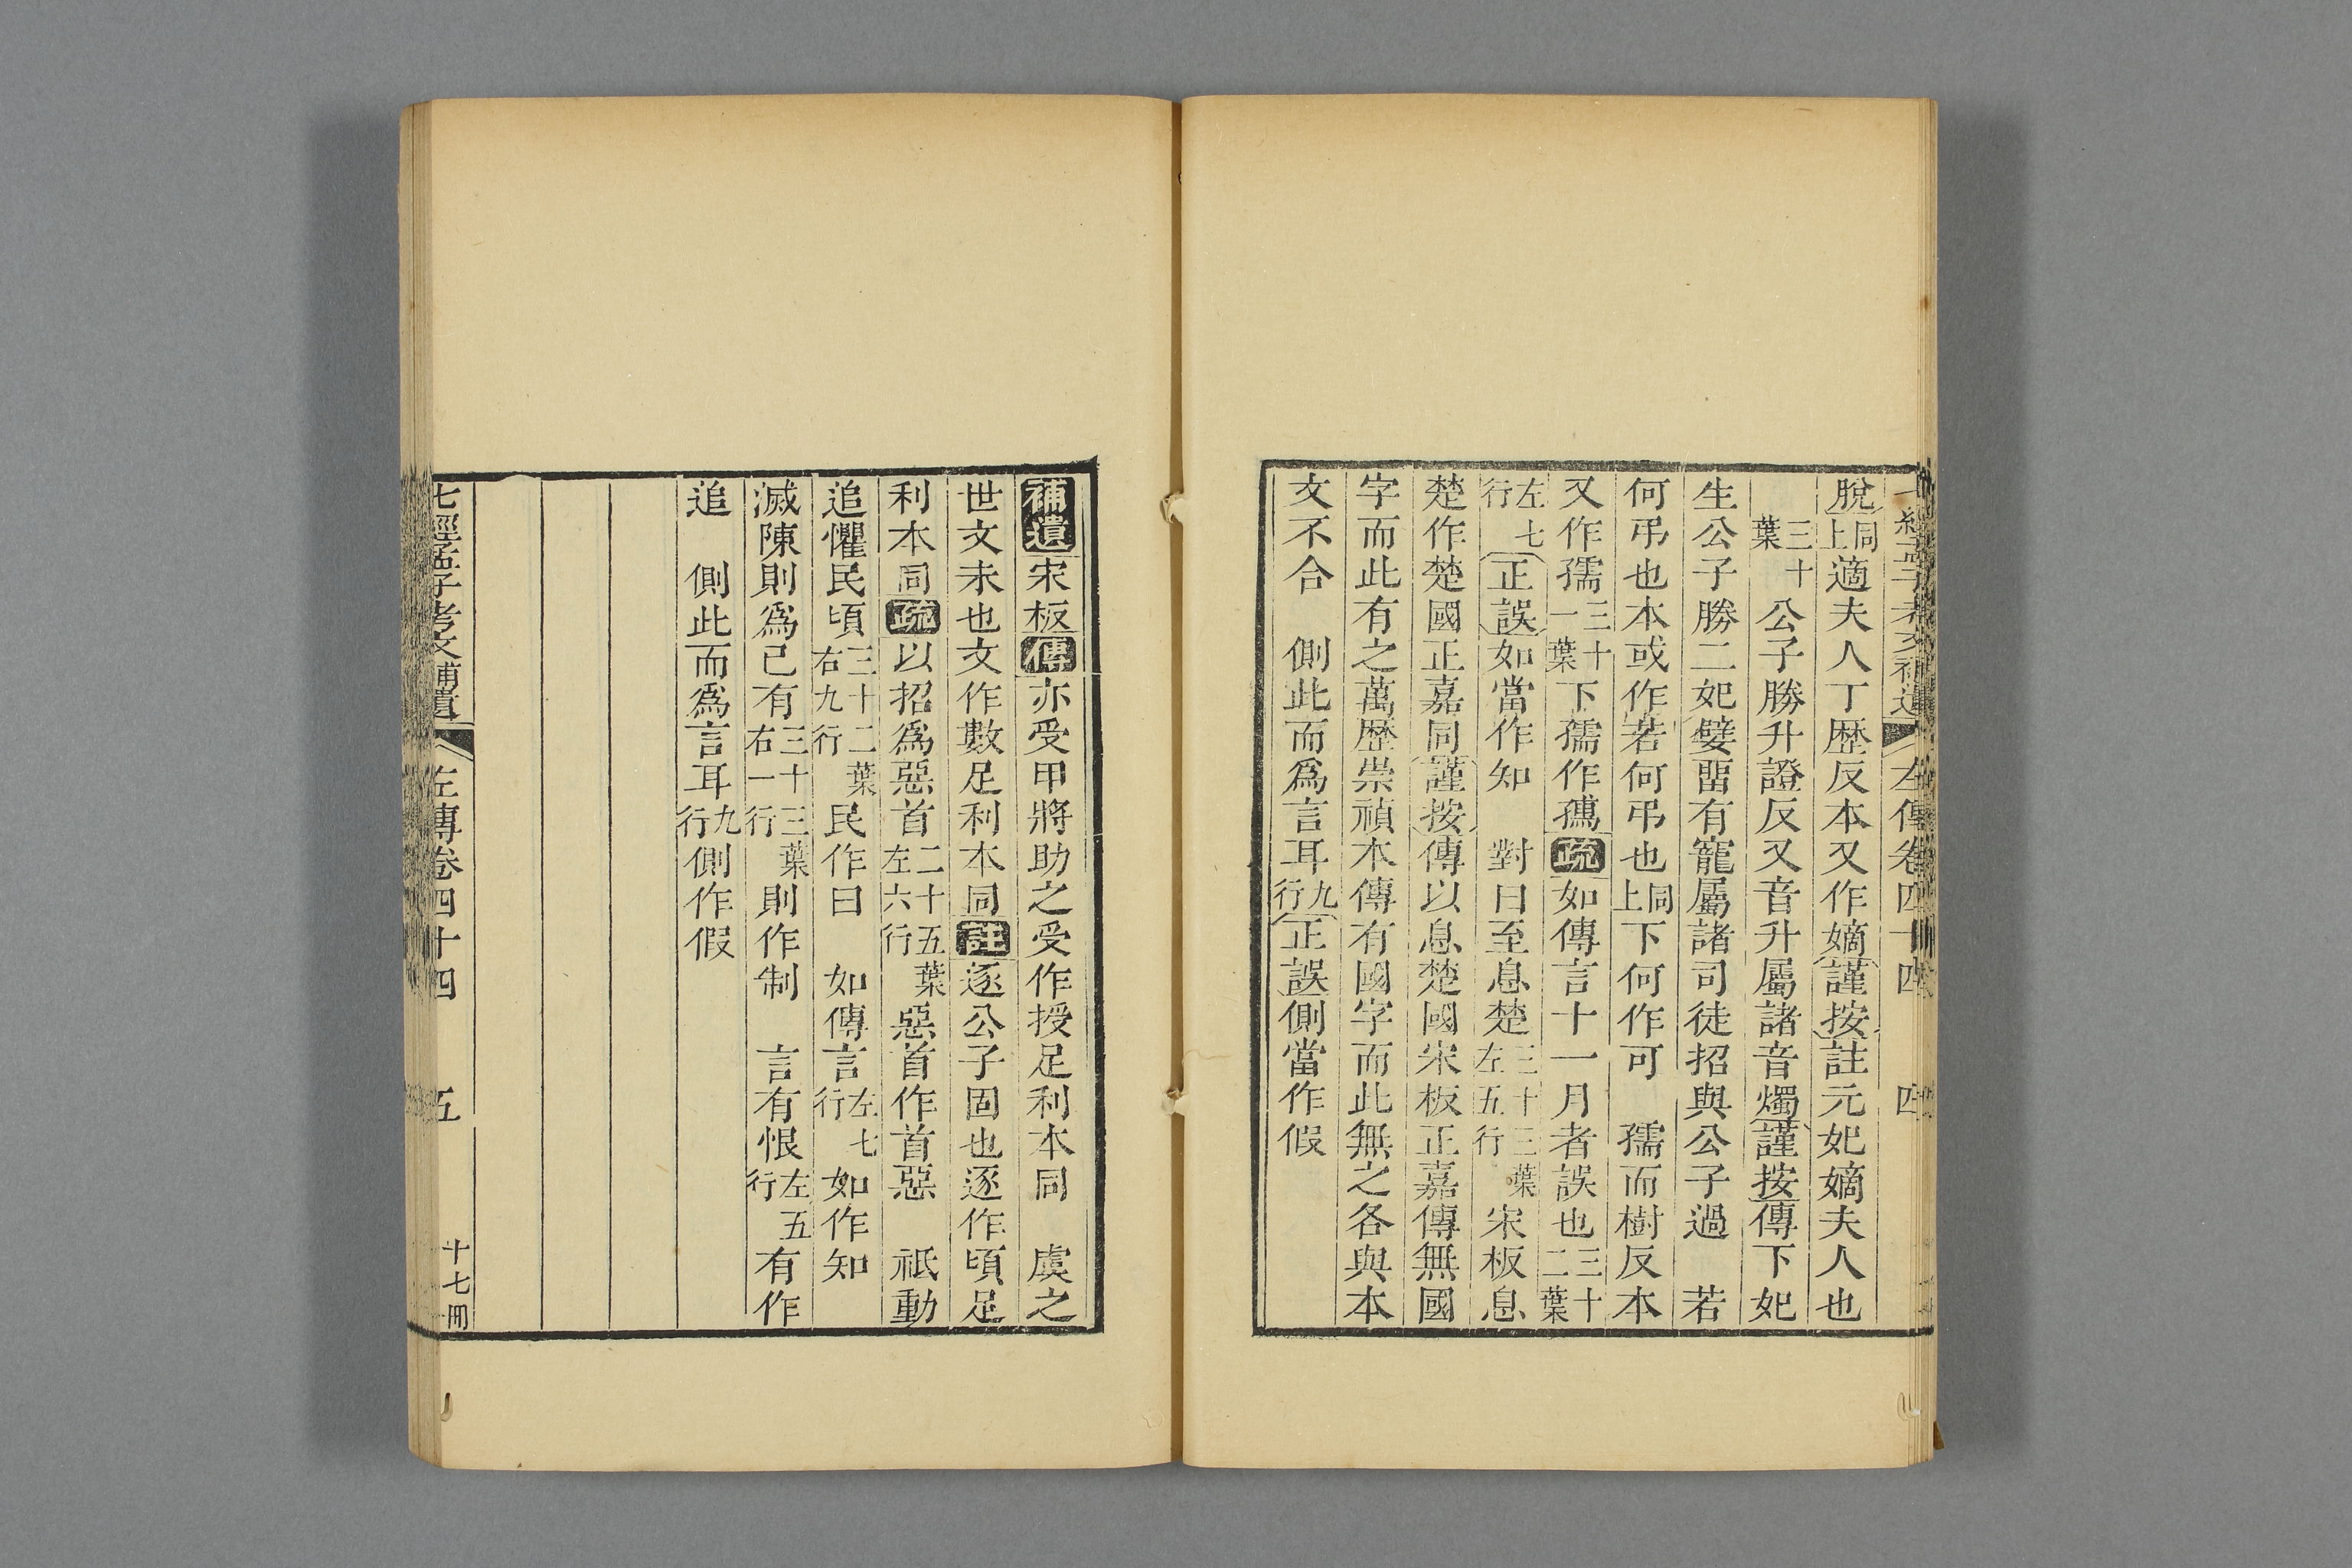 脫同上適夫人丁歷反本又作嫡謹按註元妃嫡夫人也
三十葉公子勝升證反又音升屬諸音燭謹按傳下妃
生公子勝二妃嬖畱有寵屬諸司徒招與公子過　若
何弔也本或作若何弔也同上下何作可　孺而樹反本
又作孺三十一葉下孺作㺠疏如傳言十一月者誤也三十二葉
左七行正誤如當作知　對曰至息楚三十三葉左五行宋板息
楚作楚國正嘉同謹按傳以息楚國宋板正嘉傳無國
字而此有之萬歷崇禎本傳有國字而此無之各與本
文不合　側此而爲言耳九行正誤側當作假
七經孟子考文補遺　左傳卷四十四　四
補遺宋板傳亦受甲將助之受作授足利本同　虞之
世文未也文作數足利本同註逐公子固也逐作頃足
利本同疏以招爲惡首二十五葉左六行惡首作首惡　祇動
追懼民頃三十二葉右九行民作曰　如傳言左七行如作知
滅陳則爲己有三十三葉右一行則作制　言有恨左五行有作
追　側此而爲言耳九行側作假
七經孟子考文補遺　左傳卷四十四　五　十七冊